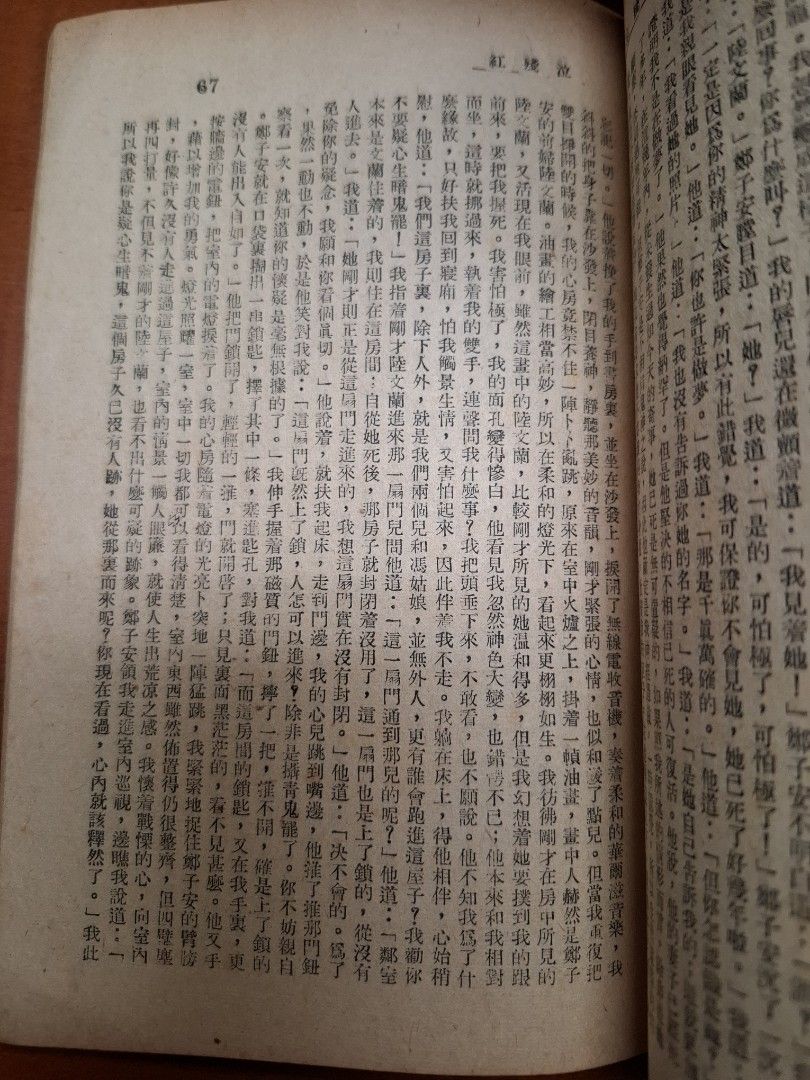 麼回事？你爲什麼叫？」我的唇兒還在微顫着道：「我看見她！」鄭子安
「陸文蘭。」鄭子安瞪目道：「她？」我道：「是的，可怕極了，可怕極了！」鄭子安
：「一定是因爲你的精神太緊張，所以有此錯覺，我可保證你不會見她，她已死了好幾年啦。」
是我親眼看見她。」他道：「你也許是做夢。」我道：「那是千眞萬確的。」他道：「但你
我道：「我看過她的照片。」他道：「我也沒有告訴過你她的名字。」我道：「是她自己告訴我的
泣殘紅
67
一切。」他說着挽了我的手到書房裏，並坐在沙發上，扳開了無線電收音機，奏着柔和的華爾滋音樂，我
斜斜的把身子靠在沙發上，閉目養神，靜聽那美妙的音韻，剛才緊張的心情，也似和緩了點兒。但當我重復把
雙目掙開的時候，我的心房竟禁不住一陣卜卜亂跳，原來在室中火爐之上，掛着一幀油畫，畫中人赫然是鄭子
安的前婦陸文蘭。油畫的繪工相當高妙，所以在柔和的燈光下，看起來更栩栩如生。我彷彿剛才在房中所見的
陸文蘭，又活現在我眼前，雖然這畫中的陸文蘭，比較剛才所見的她溫和得多，但是我幻想着她要撲到我的跟
前來，要把我握死。我害怕極了，我的面孔變得慘白，他看見我忽然神色大變，也錯愕不已；他本來和我相對
而坐，這時就挪過來，執着我的雙手，連聲問我什麼事？我把頭垂下來，不敢看，也不願說。他不知我爲了什
麼緣故，只好扶我回到寢廂，怕我觸景生情，又害怕起來，因此伴着我不走。我躺在床上，得他相伴，心始稍
慰，他道：「我們這房子裏，除下人外，就是我們兩個兒和馮姑娘，並無外人，更有誰會跑進這屋子？我勸你
不要疑心生暗鬼罷！」我指着剛才陸文蘭進來那一扇門兒問他道：「這一扇門通到那兒的呢？」他道：「鄰室
本來是文蘭住着的，我則住在這房間；自從她死後，那房子就封閉着沒用了，這一扇門也是上了鎖的，從沒有
人進去。」我道：「她剛才則正是從這扇門走進來的，我想這扇門實在沒有封閉。」他道：「决不會的。爲了
免除你的疑念，我願和你看個眞切。」他說着，就扶我起床，走到門邊，我的心兒跳到嘴邊，他推了推那門鈕
，果然一動也不動，於是他笑對我說：「這扇門既然上了鎖，人怎可以進來？除非是攝青鬼罷了。你不妨親自
察看一次，就知道你的懷疑是毫無根據的了。」我伸手握着那磁質的門鈕，擰了一把，推不開，確是上了鎖的
。鄭子安就在口袋裏掏出一串鎖匙，擇了其中一條，塞進匙孔，對我道：「而這房間的鎖匙，又在我手裏，更
沒有人能出入自如了。」他把門鎖開了，輕輕的一推，門就開啓了；只見裏面黑茫茫的，看不見甚麼。他又手
按牆邊的電鈕，把室內的電燈挨着了。我的心房隨着電燈的光亮卜突地一陣猛跳，我緊緊地捉住鄭子安的臂膀
，藉以增加我的勇氣。燈光照耀一室，室中一切我都可以看得清楚，室內東西雖然佈置得仍很整齊，但四壁塵
封，好像許久沒有人走過過這屋子，室內的情景一觸人眼簾，就使人生出荒凉之感。我懷着戰慄的心，向室內
再四打量，不但見不着剛才的陸文蘭，也看不出什麼可疑的跡象。鄭子安領我走進室內巡視，邊瞧我說道：「
所以我說你是疑心生暗鬼，這個房子久已沒有人跡，她從那裏而來呢？你現在看過，心內就該釋然了。」我此